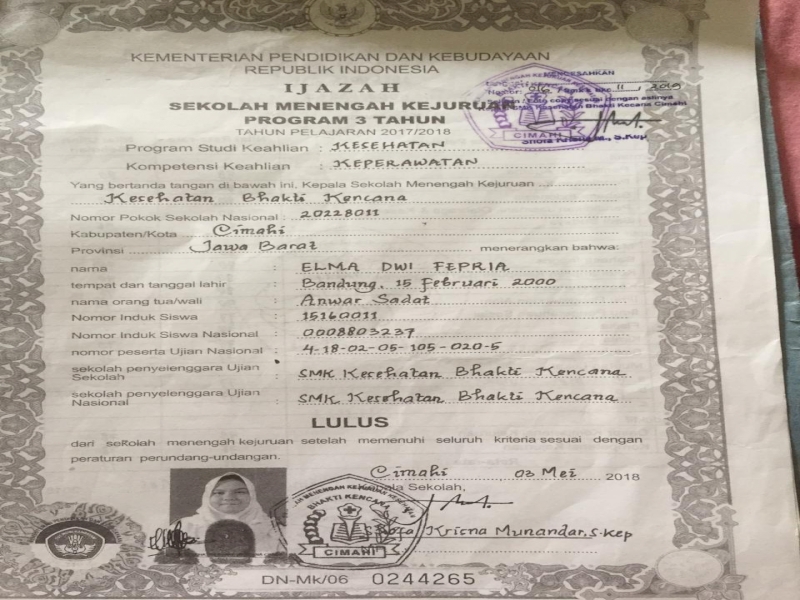 KEMENTERIAN PENDIDIKAN DAN KEBUDAYAAN
REPUBLIK INDONESIA
IJAZAH
SEKOLAH MENENGAH KEJURUAN
PROGRAM 3 TAHUN
TAHUN PELAJARAN 2017/2018
MENGESAHKAN
11, 2019
Bhakti Kencana Cimahi
CIMAHI
Program Studi Keahlian : KESEHATAN
Kompetensi Keahlian : KEPERAWATAN
Yang bertanda tangan di bawah ini, Kepala Sekolah Menengah Kejuruan
Kesehatan Bhakti Kencana
Nomor Pokok Sekolah Nasional : 20228011
Kabupaten/Kota : Cimahi
Provinsi : Jawa Barat menerangkan bahwa:
nama : ELMA DWI FEPRIA
tempat dan tanggal lahir : Bandung, 15 Februari 2000
nama orang tua/wali : Anwar Sadat
Nomor Induk Siswa : 15160011
Nomor Induk Siswa Nasional : 0008803237
nomor peserta Ujian Nasional : 4-18-02-05-105-020-5
sekolah penyelenggara Ujian
Sekolah : SMK Kesehatan Bhakti Kencana
sekolah penyelenggara Ujian
Nasional : SMK Kesehatan Bhakti Kencana
LULUS
dari sekolah menengah kejuruan setelah memenuhi seluruh kriteria sesuai dengan
peraturan perundang-undangan.
Cimahi, 03 Mei 2018
Kepala Sekolah,
BHAKTI KENCANA
CIMAHI
Krisna Munandar, S.Kep
DN-Mk/06 0244265